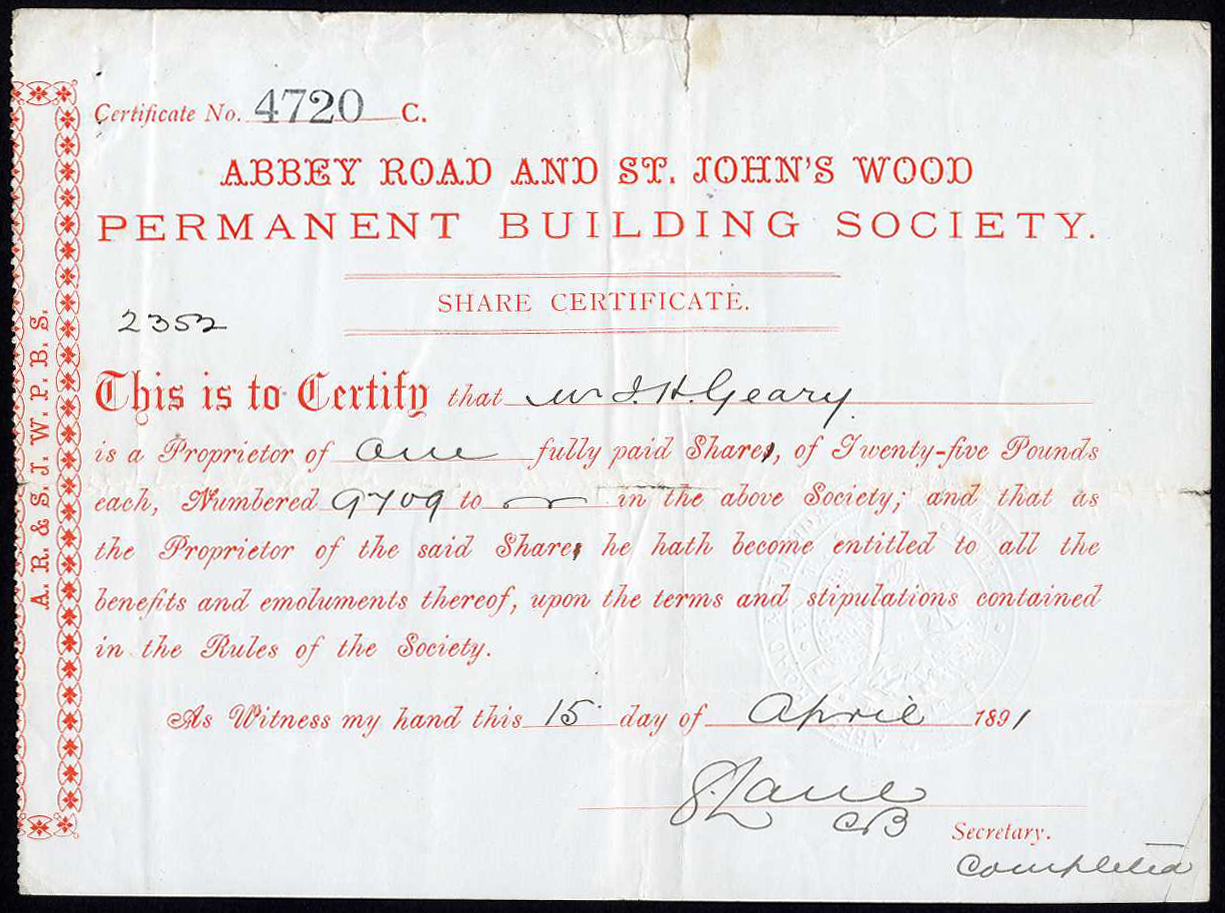 Certificate No. 4720 C.
ABBEY ROAD AND ST. JOHN'S WOOD
PERMANENT BUILDING SOCIETY.
SHARE CERTIFICATE.
2352
This is to Certify that Mr J. H. Geary
is a Proprietor of One fully paid Share, of Twenty-five Pounds
each, Numbered 9709 to in the above Society; and that as
the Proprietor of the said Share he hath become entitled to all the
benefits and emoluments thereof, upon the terms and stipulations contained
in the Rules of the Society.
As Witness my hand this 15 day of April 1891
Lane
CB
Secretary.
Completed
A. R. & S. J. W. P. B. S.